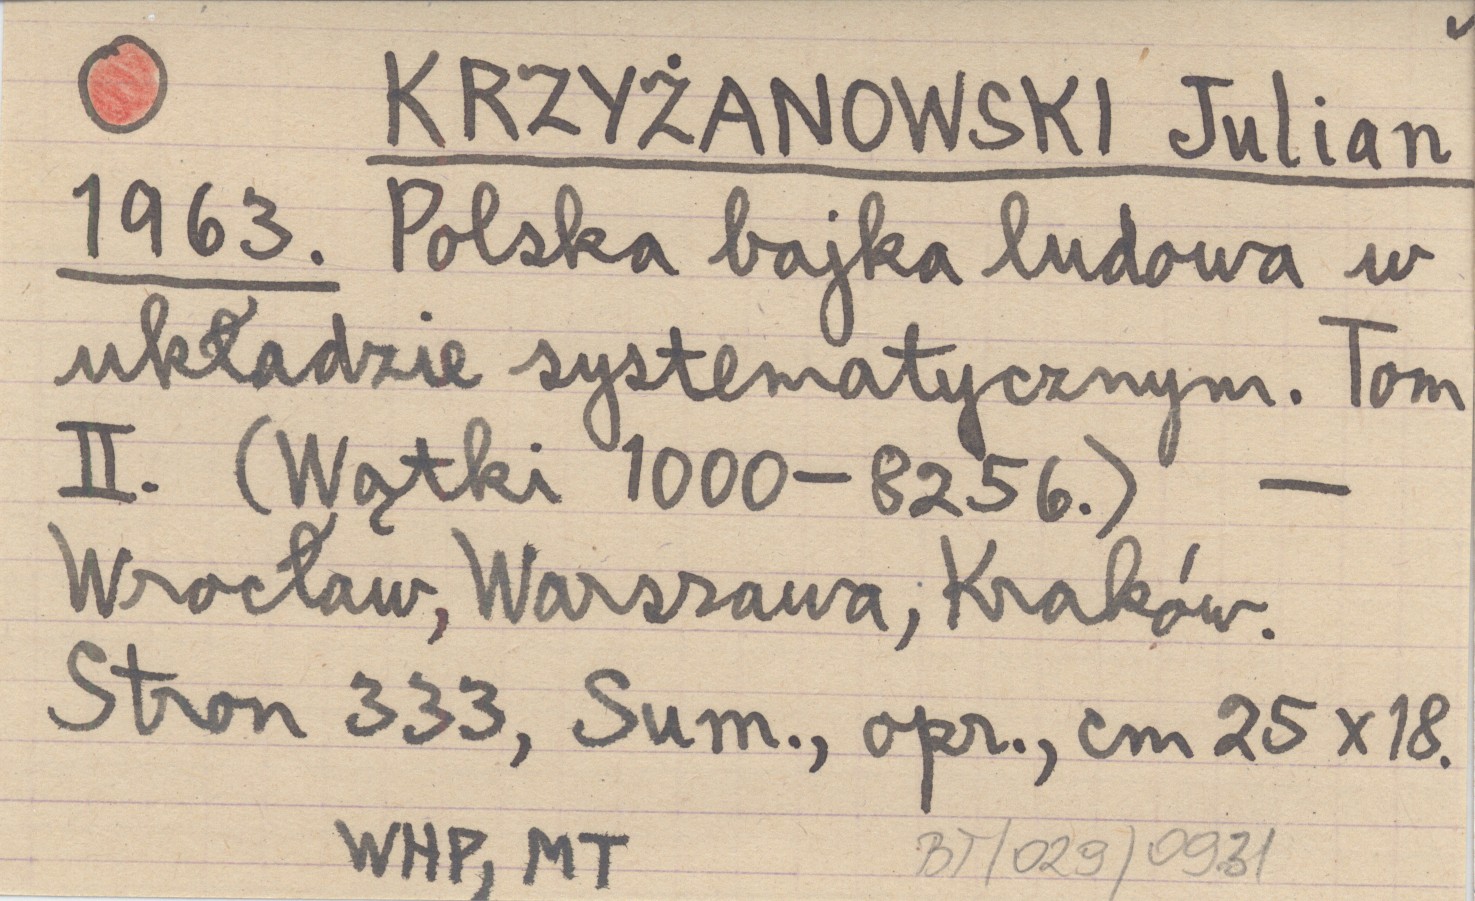 KRZYŻANOWSKI Julian
1963. Polska bajka ludowa w
układzie systematycznym. Tom
II. (Wątki 1000-8256.) —
Wrocław, Warszawa, Kraków.
Stron 333, Sum., opr., cm 25 x 18.
WHP, MT
BT/029/0931